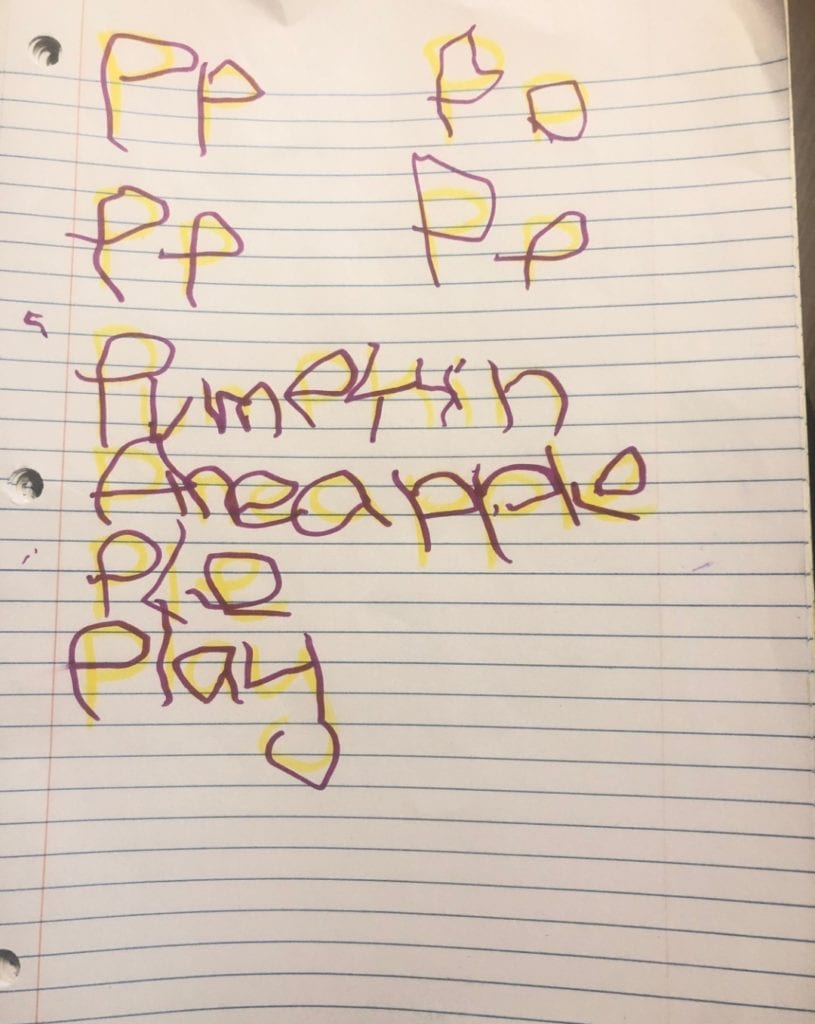 Pp Pp
Pp Pp
Pumpkin
Pineapple
Pie
Play